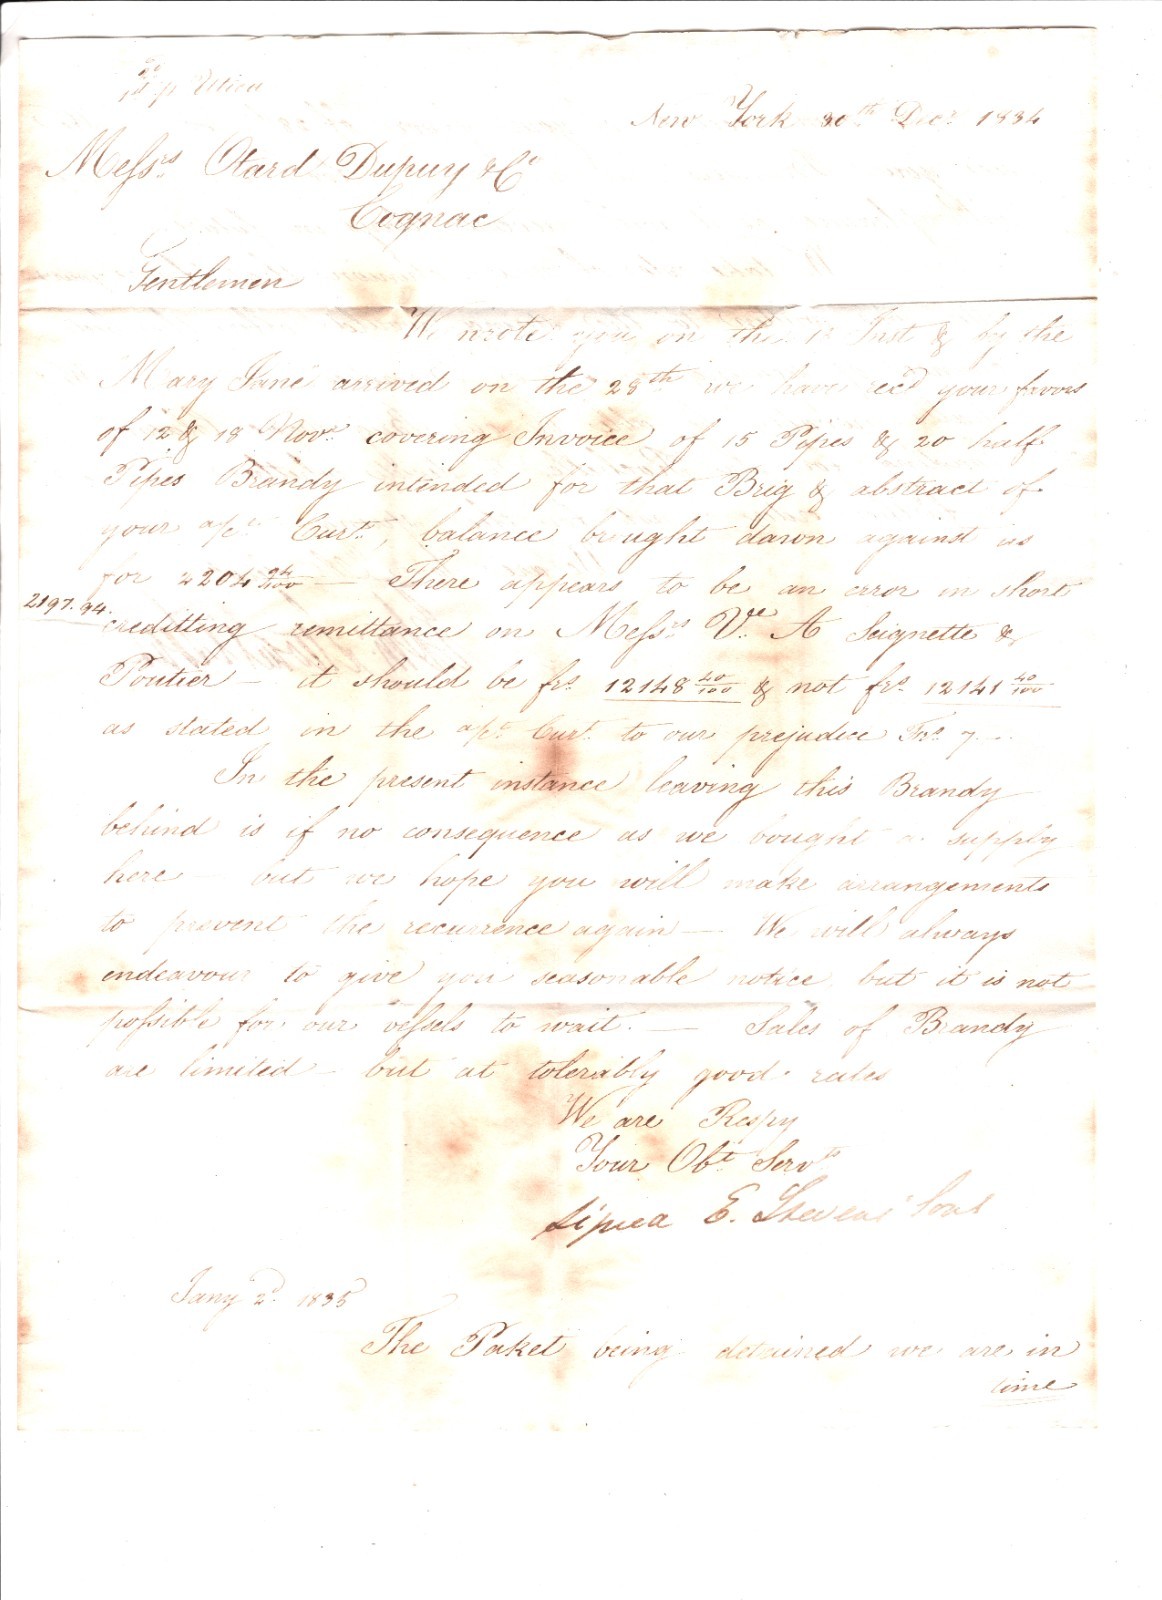 p Utica
New York 30th Decr 1834
Messrs Otard Dupuy & Co
Cognac
Gentlemen
We wrote you on the 1st Inst & by the
Mary Jane arrived on the 28th we have recd your favors
of 12 & 18 Novr covering Invoice of 15 Pipes & 20 half
Pipes Brandy intended for that Brig & abstract of
your a/ct Curt, balance brought down against us
for 2204 94/100 — There appears to be an error in short
2197.94.
creditting remittance on Messrs Ve A Seignette &
Poutier — it should be frs 12148 40/100 & not frs 12141 40/100
as stated in the a/ct Curt to our prejudice Frs 7 —
In the present instance leaving this Brandy
behind is if no consequence as we bought a supply
here — but we hope you will make arrangements
to prevent the recurrence again — We will always
endeavour to give you seasonable notice but it is not
possible for our vessels to wait. — Sales of Brandy
are limited — but at tolerably good rates
We are Respy
Your Obt Servts
E. Stevens' Sons
Jany 2d 1835
The Packet being detained we are in
time